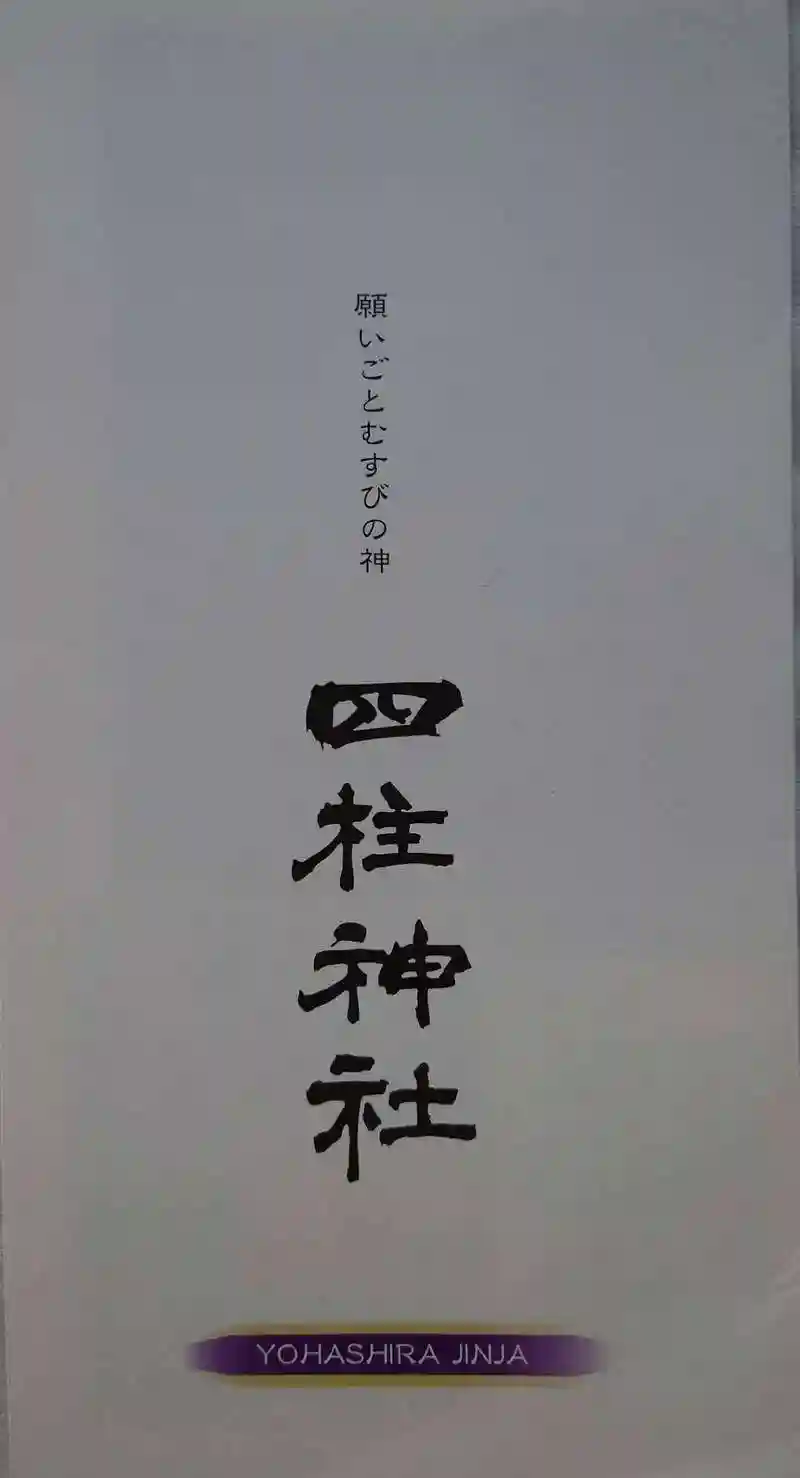 願いごとむすびの神
四柱神社
YOHASHIRA JINJA